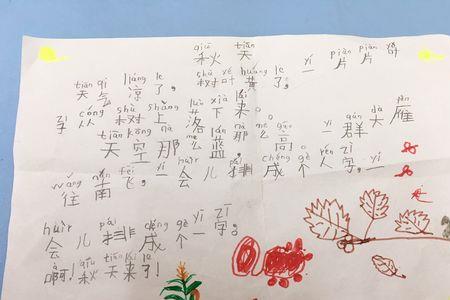 qiū tiān
秋 天
tiān qì liáng le shù yè huáng le yí piàn piàn
天气凉了。树叶黄了。一片片
zǐ cóng shù shàng luò xià lái
子从树上落下来。
tiān kōng nà me nà me yì qún dà yàn
天空那么蓝。那么高。一群大雁
wǎng nán fēi yí huìr pái chéng gè rén zì
往南飞。一会儿排成个人字。一
huìr pái chéng gè yī zì
会儿排成个一字。
à qiū tiān lái le
啊!秋天来了!